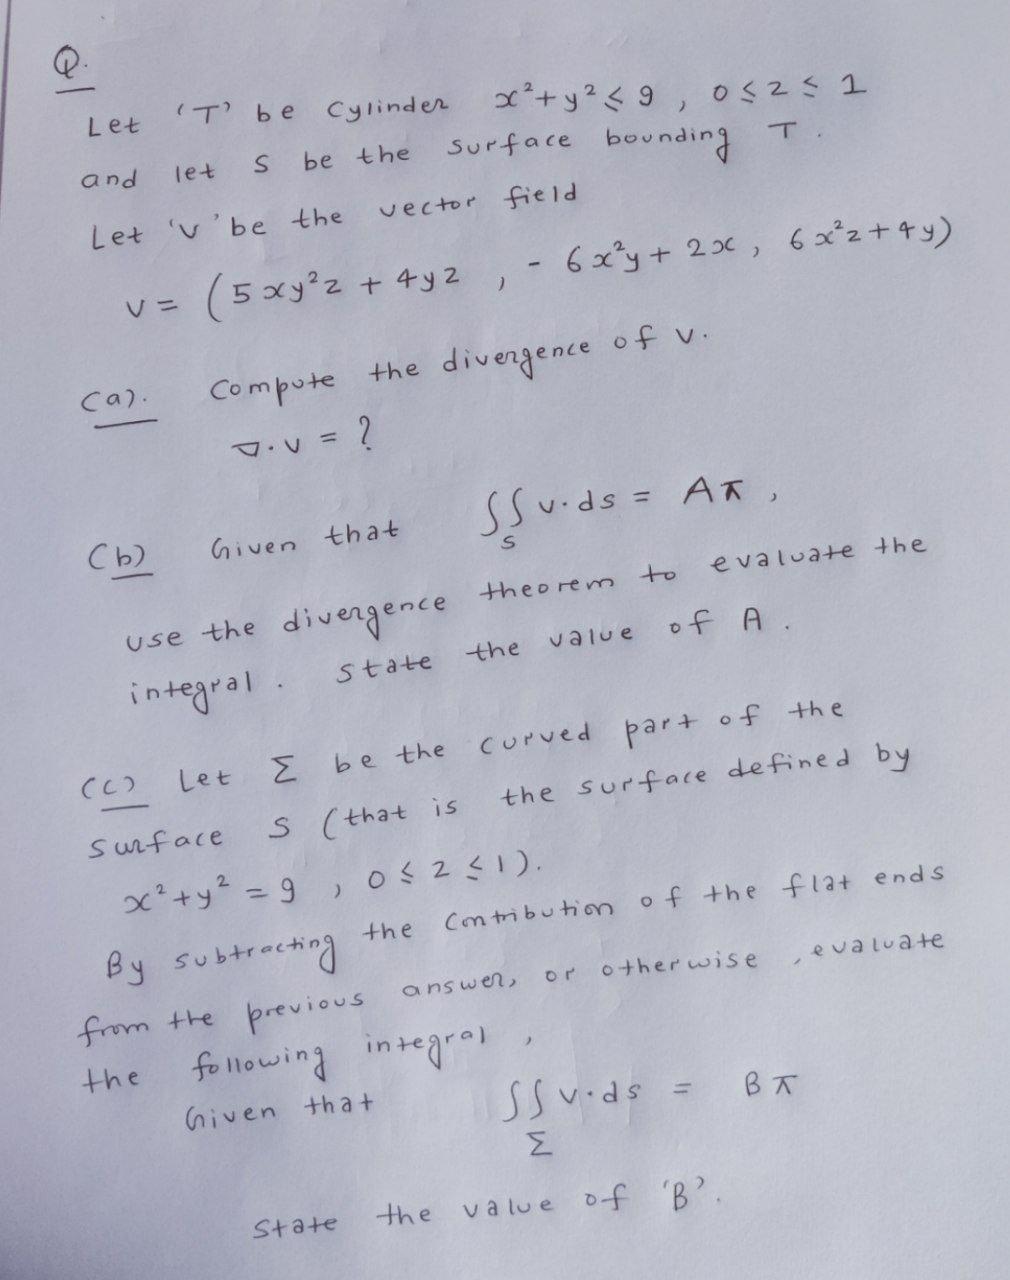 Q.
Let 'T' be cylinder x²+y² ≤ 9 , 0 ≤ z ≤ 1
and let S be the surface bounding T.
Let 'v' be the vector field
v = (5xy²z + 4yz , - 6x²y + 2x , 6x²z + 4y)
(a). Compute the divergence of v.
∇.v = ?
(b) Given that ∫∫ v.ds = Aπ ,
S
use the divergence theorem to evaluate the
integral. State the value of A.
(c) Let Σ be the curved part of the
surface S (that is the surface defined by
x²+y² = 9 , 0 ≤ z ≤ 1).
By subtracting the contribution of the flat ends
from the previous answer, or otherwise, evaluate
the following integral,
Given that ∫∫ v.ds = Bπ
Σ
State the value of 'B'.